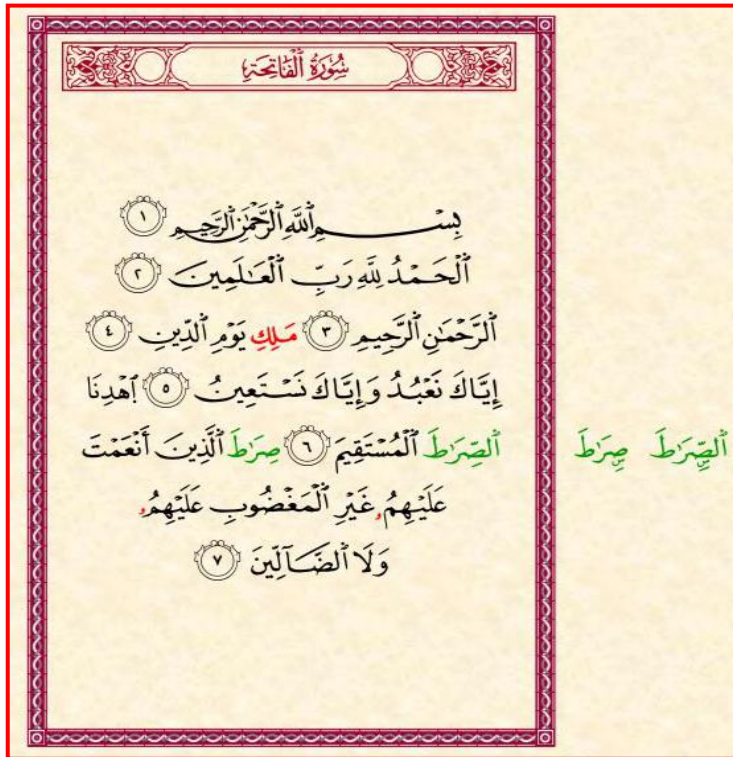 سُورَةُ ٱلْفَاتِحَةِ
بِسْمِ ٱللَّهِ ٱلرَّحْمَٰنِ ٱلرَّحِيمِ ١
ٱلْحَمْدُ لِلَّهِ رَبِّ ٱلْعَٰلَمِينَ ٢
ٱلرَّحْمَٰنِ ٱلرَّحِيمِ ٣ مَلِكِ يَوْمِ ٱلدِّينِ ٤
إِيَّاكَ نَعْبُدُ وَإِيَّاكَ نَسْتَعِينُ ٥ ٱهْدِنَا
ٱلصِّرَٰطَ ٱلْمُسْتَقِيمَ ٦ صِرَٰطَ ٱلَّذِينَ أَنْعَمْتَ
عَلَيْهِمُۥ غَيْرِ ٱلْمَغْضُوبِ عَلَيْهِمُۥ
وَلَا ٱلضَّآلِّينَ ٧
ٱلصِّۣرَٰطَ صِۣرَٰطَ